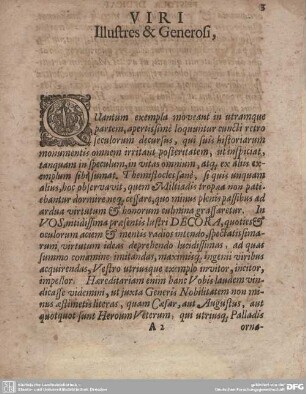 3
VIRI
Illustres & Generosi,
QUantum exempla moveant in utramque
partem, apertissimè loquuntur cuncti retro
seculorum decursus, qui suis historiarum
monumentis omnem irritant posteritatem, ut inspiciat,
tanquam in speculum, in vitas omnium, atq; ex aliis ex-
emplum sibi sumat. Themistocles sanè, si quis unquam
alius, hoc observavit, quem Miltiadis tropæa non pati-
ebantur dormire, neq; cessare, quo minus plenis passibus ad
ardua virtutum & honorum culmina grassaretur. In
VOS, nitidissima præsentis lustri DECORA, quoties &
oculorum aciem & mentis radios intendo, spectatissima-
rum virtutum ideas deprehendo lucidissimas, ad quas
summo conamine imitandas, maximisq; ingenii viribus
acquirendas, Vestro utriusque exemplo invitor, incitor,
impellor. Hæreditariam enim hanc Vobis laudem vindi-
casse videmini, ut juxta Generis Nobilitatem non mi-
nus æstimetis literas, quam Cæsar, aut Augustus, aut
quotquot sunt Heroum Veterum, qui utriusq; Palladis
A 2 orna-